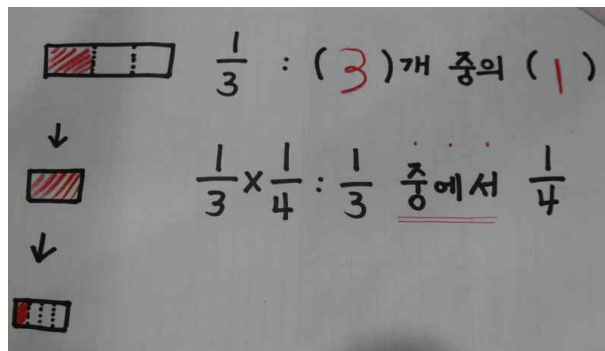 1/3 : (3)개 중의 (1)
1/3 × 1/4 : 1/3 중에서 1/4